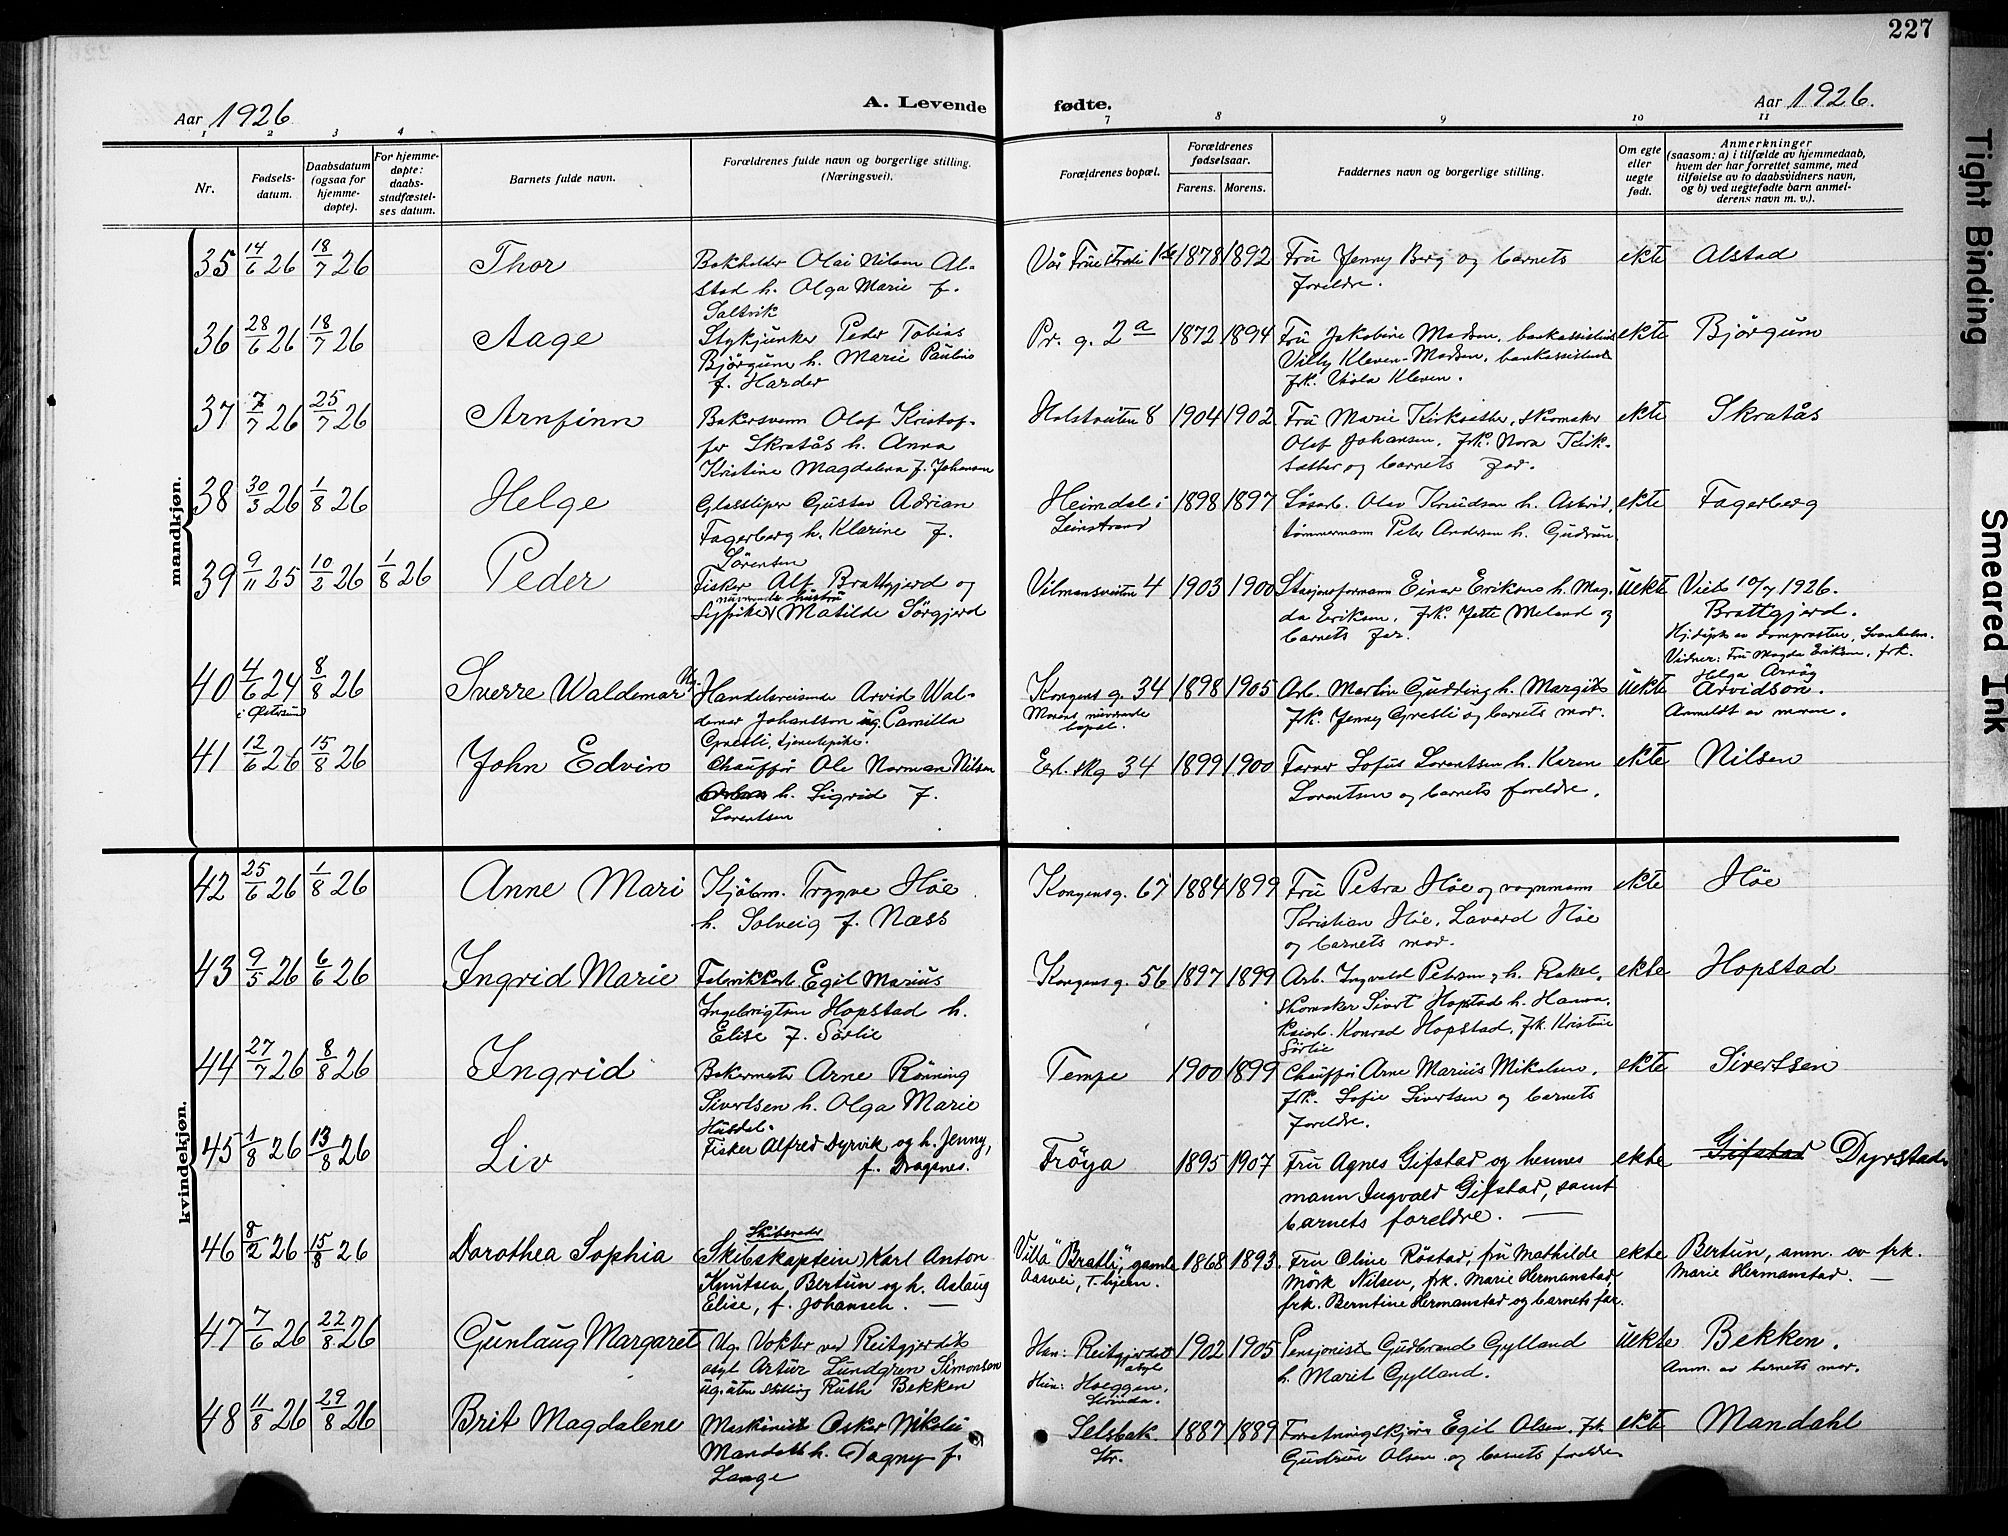 227
Aar 1926
A. Levende
fødte.
Aar 1926.
1 2 3 4 7 8 9 10 11
Nr.
Fødsels-
datum.
Daabsdatum
(ogsaa for
hjemme-
døpte).
For hjemme-
døpte:
daabs-
stadfæstel-
ses datum.
Barnets fulde navn.
Forældrenes fulde navn og borgerlige stilling.
(Næringsvei).
Forældrenes bopæl.
Forældrenes
fødselsaar.
Farens. Morens.
Faddernes navn og borgerlige stilling.
Om egte
eller
uegte
født.
Anmerkninger
(saasom: a) i tilfælde av hjemmedaab,
hvem der har forrettet samme, med
tilføielse av to daabsvidners navn,
og b) ved uegtefødte barn anmel-
derens navn m. v.).
mandkjøn.
35 14/6 26 18/7 26 Thor
Bokholder Olai Nilsen Al-
stad h. Olga Marie f.
Saltvik
Vår Frue Strete 1878 1892
Fru Jenny Berg og barnets
foreldre.
ekte Alstad
36 28/6 26 18/7 26 Aage
Stykjunker Peder Tobias
Bjørgum h. Marie Pauline
f. Harder
Pr. g. 2a 1872 1894
Fru Jakobine Madsen, bankassistent
Villy Kleven-Madsen, bankassistent
frk. Viola Kleven.
ekte Bjørgum
37 7/7 26 25/7 26 Arnfinn
Bakersvenn Olaf Kristof-
fer Skratås h. Anna
Kristine Magdalena f. Johansen
Holstveiten 8 1904 1902
Fru Marie Kirksæther, skomaker
Olaf Johansen, frk. Nora Kirk-
sæther og barnets far.
ekte Skratås
38 30/3 26 1/8 26 Helge
Glassliper Gustav Adrian
Fagerberg h. Klarine f.
Sørensen
Heimdal i
Leinstrand
1898 1897
Løsarb. Olav Knudsen h. Astrid,
tømmermann Peter Andersen h. Gudrun.
ekte Fagerberg
39 9/11 25 10/2 26 1/8 26 Peder
Fisker Alf Brattgjerd og
nuværende hustru
Sypike Matilde Sørgjerd
Vilmansveiten 4 1903 1900
Stasjonsformann Einar Eriksen h. Mag-
da Eriksen, frk. Jette Meland og
barnets far.
uekte Viet 10/7 1926.
Brattgjerd.
Hj.døpt av domprosten, Svanholm.
Vidner: Fru Magda Eriksen, frk.
Helga
40 4/6 24 8/8 26 Sverre Waldemar
i Østersund
Handelsreisende Arvid Wal-
demar Johansson ug. Camilla
Gresli, tjenestepike.
Kongens g. 34
Morens nuværende
bopæl.
1898 1905
Arb. Martin Gudding h. Margit
frk. Jenny Gresli og barnets mor.
uekte Arvidson.
Anmeldt av moren.
41 12/6 26 15/8 26 John Edvin
Chauffør Ole Norman Nilsen
h. Sigrid f.
Lorentsen
Erl. Skg 34 1899 1900
Farver Sofus Lorentsen h. Karen
Lorentsen og barnets foreldre.
ekte Nilsen
kvindekjøn.
42 25/6 26 1/8 26 Anne Mari
Kjøbm. Trygve Høe
h. Solveig f. Næss
Kongens g. 67 1884 1899
Fru Petra Høe og vognmann
Kristian Høe, Lavard Høe
og barnets mor.
ekte Høe
43 9/5 26 6/6 26 Ingrid Marie
Fabrikkarb. Egil Marius
Ingebrigtsen Hopstad h.
Elise f. Sørlie
Kongens g. 56 1897 1899
Arb. Ingvald Petersen, h. Rakel,
Skomaker Sivert Hopstad h. Hanna,
Konrad Hopstad, frk. Kristine
Sørlie
ekte Hopstad
44 27/7 26 8/8 26 Ingrid
Bakermester Arne Rønning
Sivertsen h. Olga Marie
Husdal.
Tempe 1900 1899
Chauffør Arne Marius Mikalsen,
frk. Sofie Sivertsen og barnets
foreldre.
ekte Sivertsen
45 1/8 26 13/8 26 Liv
Fisker Alfred Dyrvik og h. Jenny,
f. Dragsnes.
Frøya 1895 1907
Fru Agnes Gifstad og hennes
mann Ingvald Gifstad, samt
barnets foreldre.
ekte Gifstad Dyrstad
46 8/2 26 15/8 26 Dorothea Sophia
Skibsreder
(Skibskaptein) Karl Anton
Knutsen Bertun og h. Aslaug
Elise, f. Johansen.
Villa "Bratli", gamle
Aasvei, T.hjem.
1868 1893
Fru Oline Røstad, fru Mathilde
Mørk Nilsen, frk. Marie Hermanstad,
frk. Berntine Hermanstad og barnets far.
ekte Bertun, anm. av frk.
Marie Hermanstad.
47 7/6 26 22/8 26 Gunlaug Margaret
Ug. Vokter ved Reitgjerdet
asyl Artur Lundgren Simonsen
ug. uten stilling Ruth Bekken
Han: Reitgjerdet
asyl
Hun: Hoeggen,
Strinda.
1902 1905
Pensjonist Gudbrand Gylland
h. Marit Gylland.
uekte Bekken.
Anm. av barnets mor.
48 11/8 26 29/8 26 Brit Magdalene
Maskinist Oskar Nikolai
Mandahl h. Dagny f.
Lange
Selsbak
Str.
1887 1889
Forretningskjører Egil Olsen, frk.
Gudrun Olsen og barnets foreldre
ekte Mandahl
Tight Binding
Smeared Ink